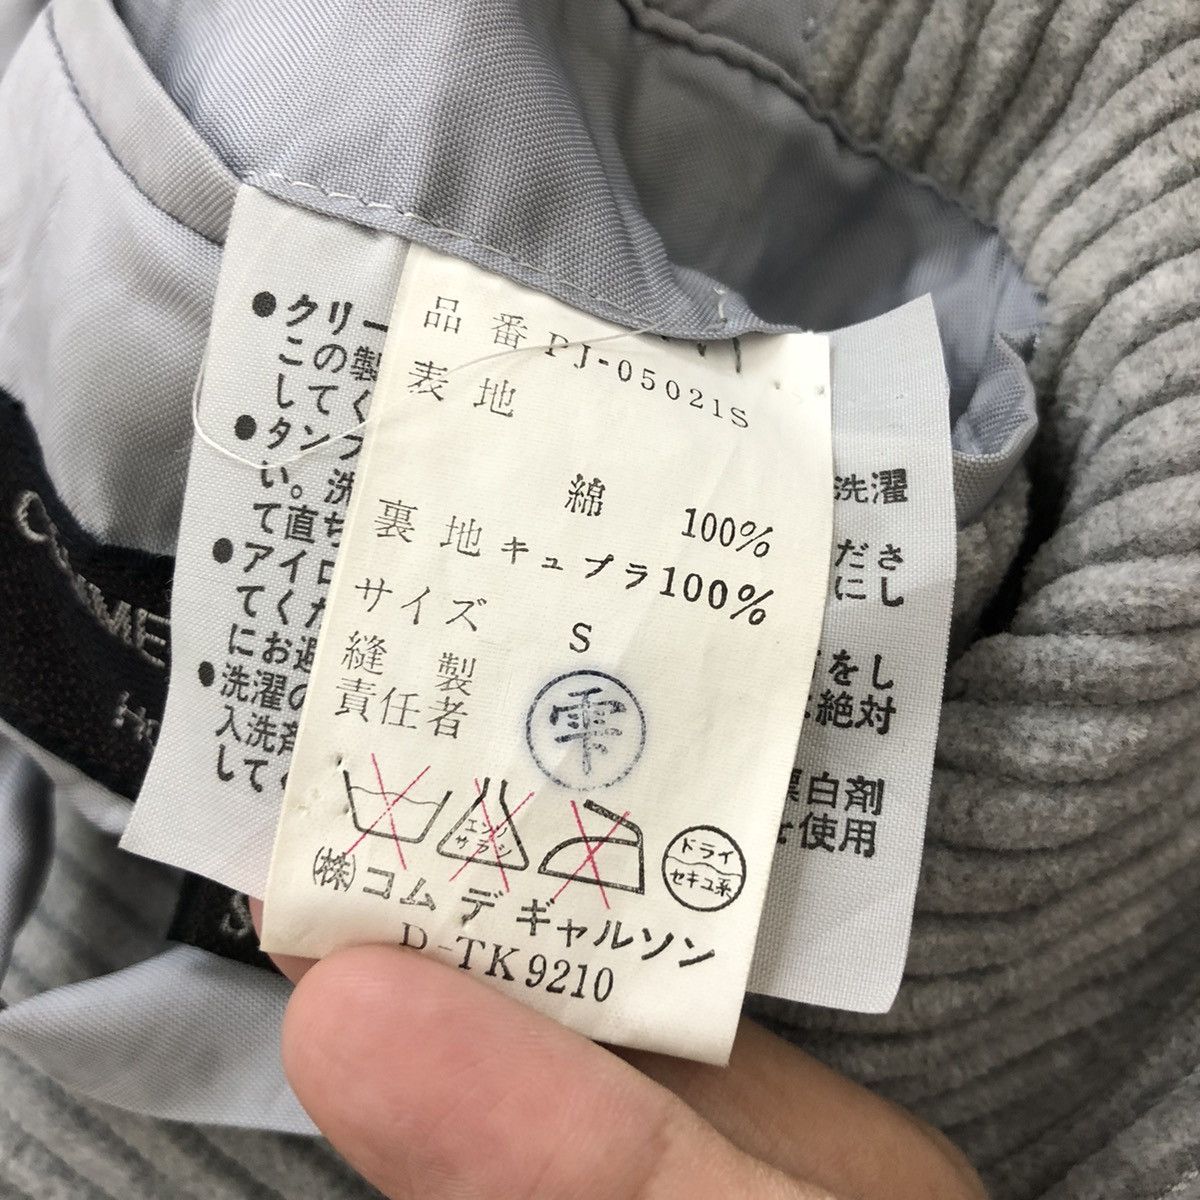 品番 PJ-05021S
表地
綿 100%
裏地 キュプラ 100%
サイズ S
縫製
責任者 雫
エンソ
サラシ
ドライ
セキユ系
(株)コム デ ギャルソン
D-TK9210
●クリー
この製
してく
●タンブ
い。洗
て直ち
●アイロ
てくだ
にお過
●洗濯の
入洗剤
してく
洗濯
ださ
にし
をし
絶対
漂白剤
使用